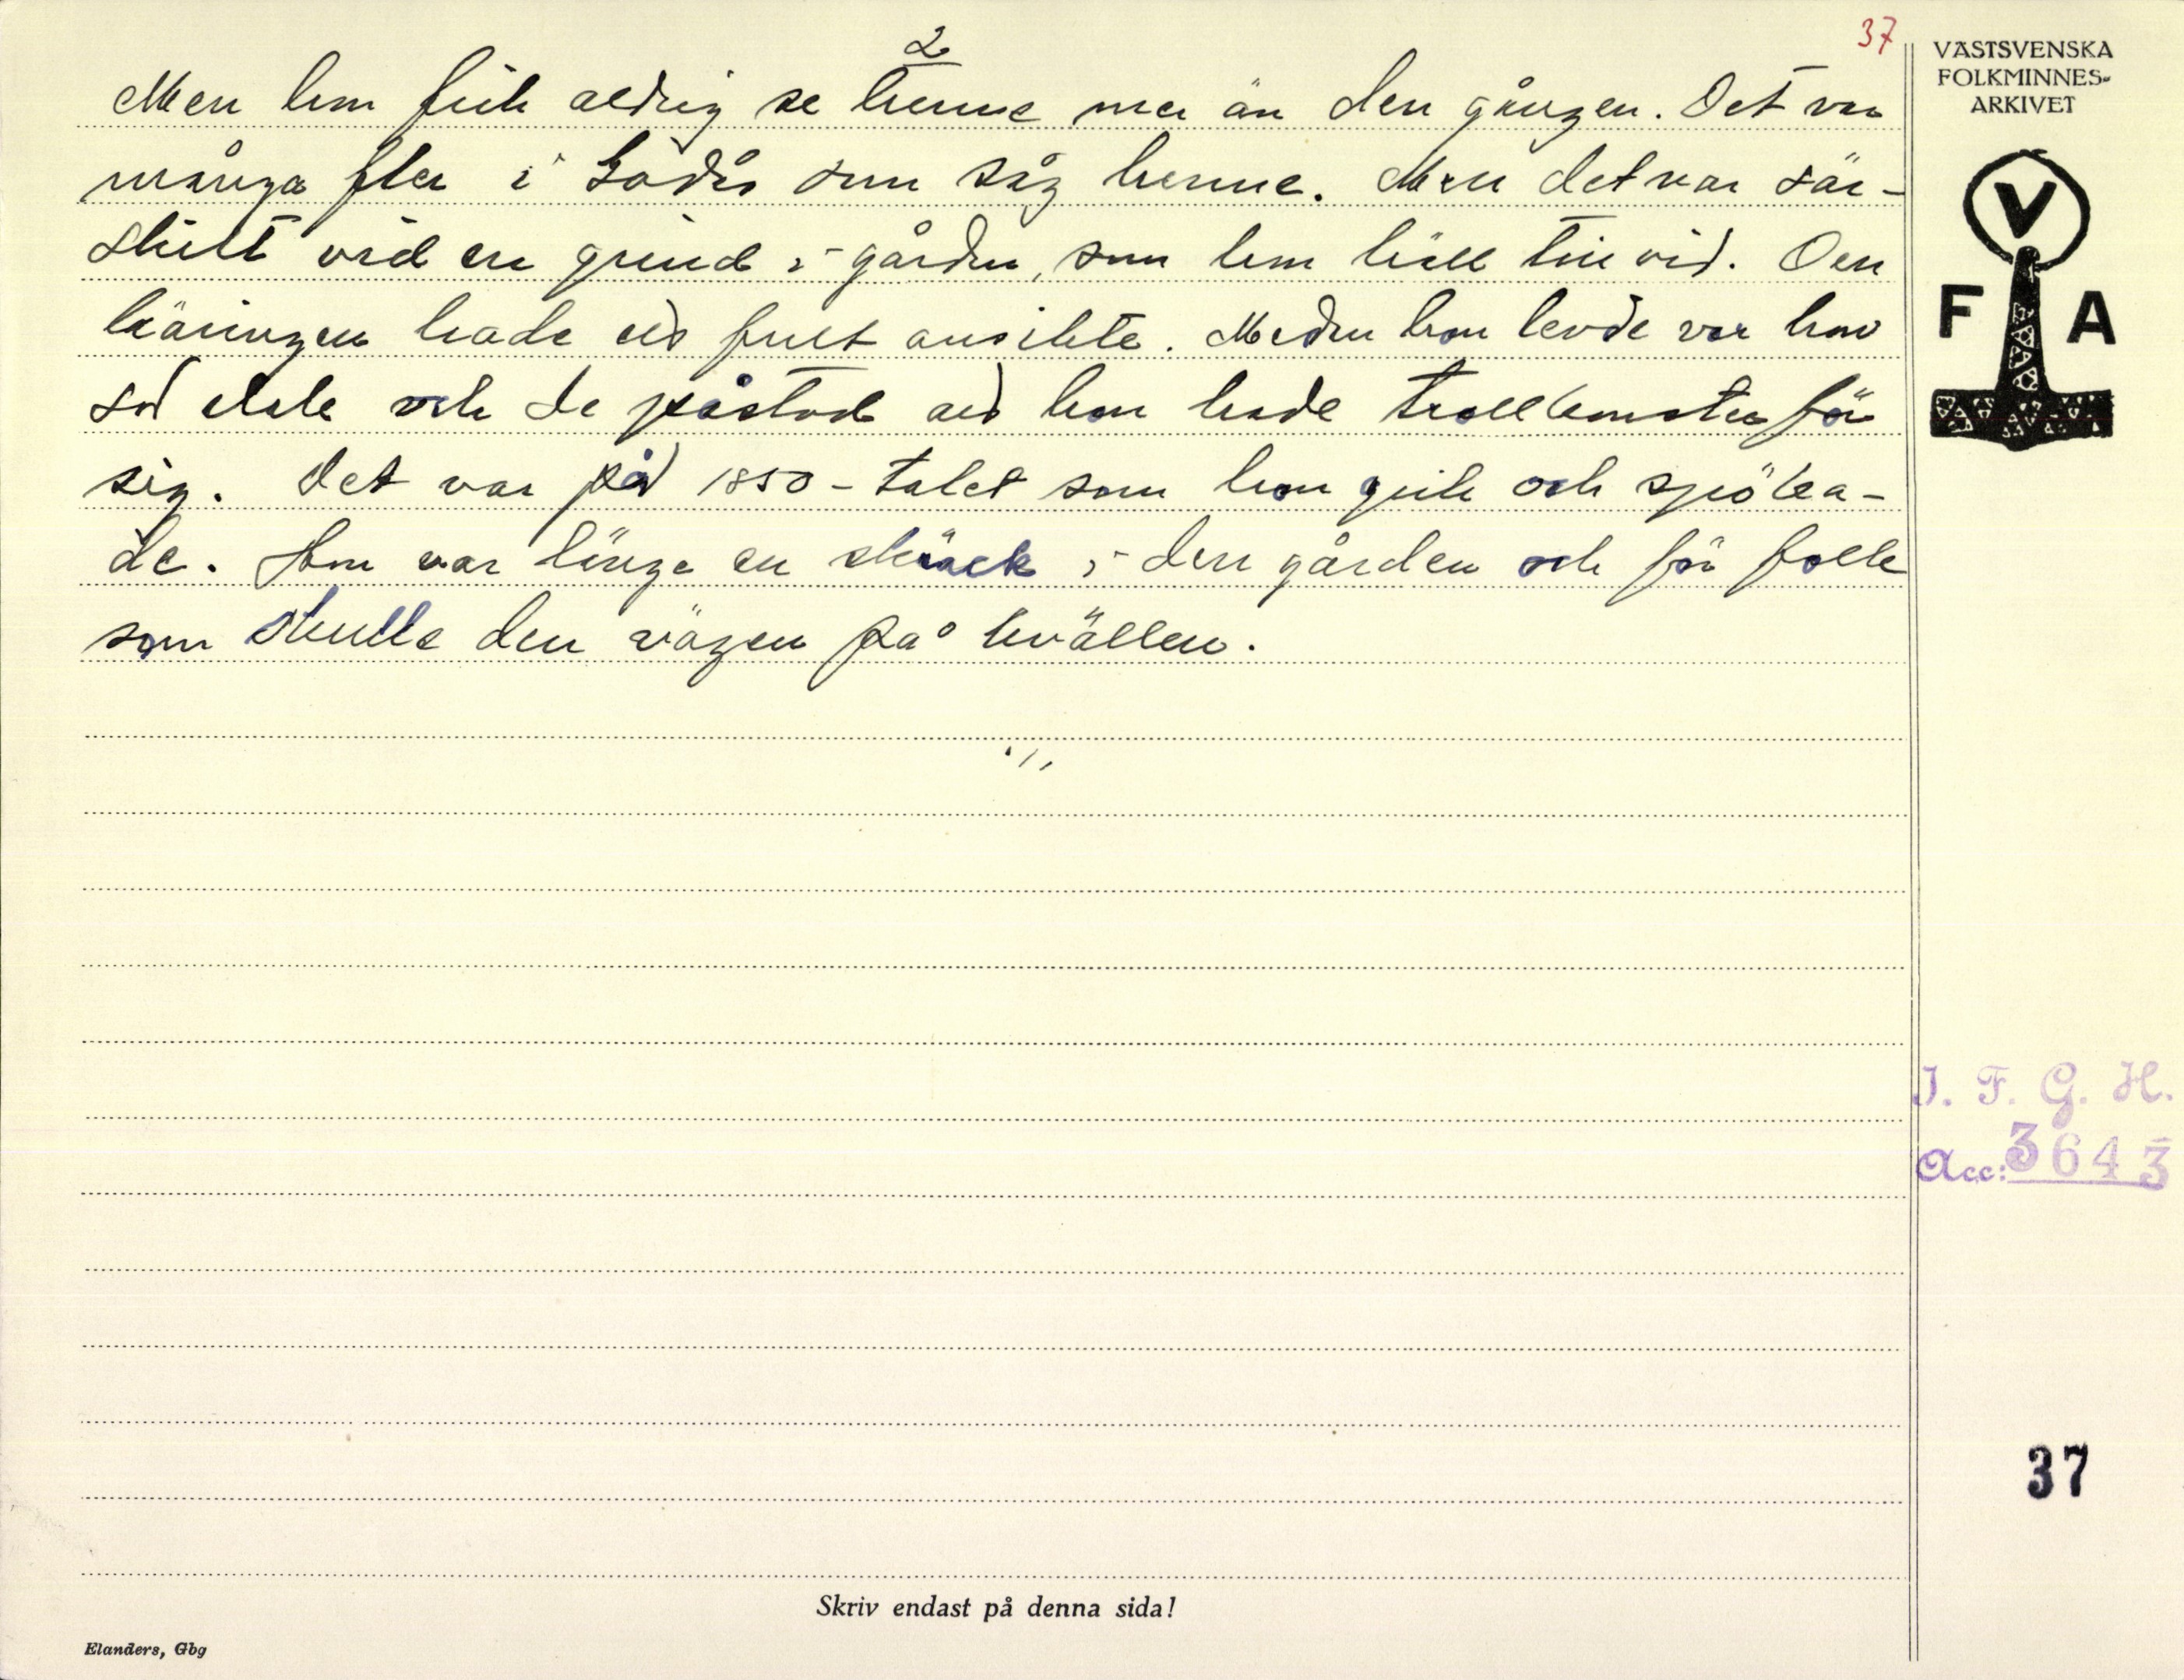 37
2
Men hon fick aldrig se henne mer än den gången. Det var
många fler i som såg henne. Men det var sär-
skilt vid en grind i gården, som hon höll till vid. Den
käringen hade ett fult ansikte. Medan hon levde var hon
så elak och de påstod att hon hade trollkonster för
sig. Det var på 1850-talet som hon gick och spöka-
de. Hon var länge en skräck i den gården och för folk
som skulle den vägen på kvällen.
VÄSTSVENSKA
FOLKMINNES-
ARKIVET
V
F A
I. F. G. H.
Acc: 3643
37
Skriv endast på denna sida!
Elanders, Gbg